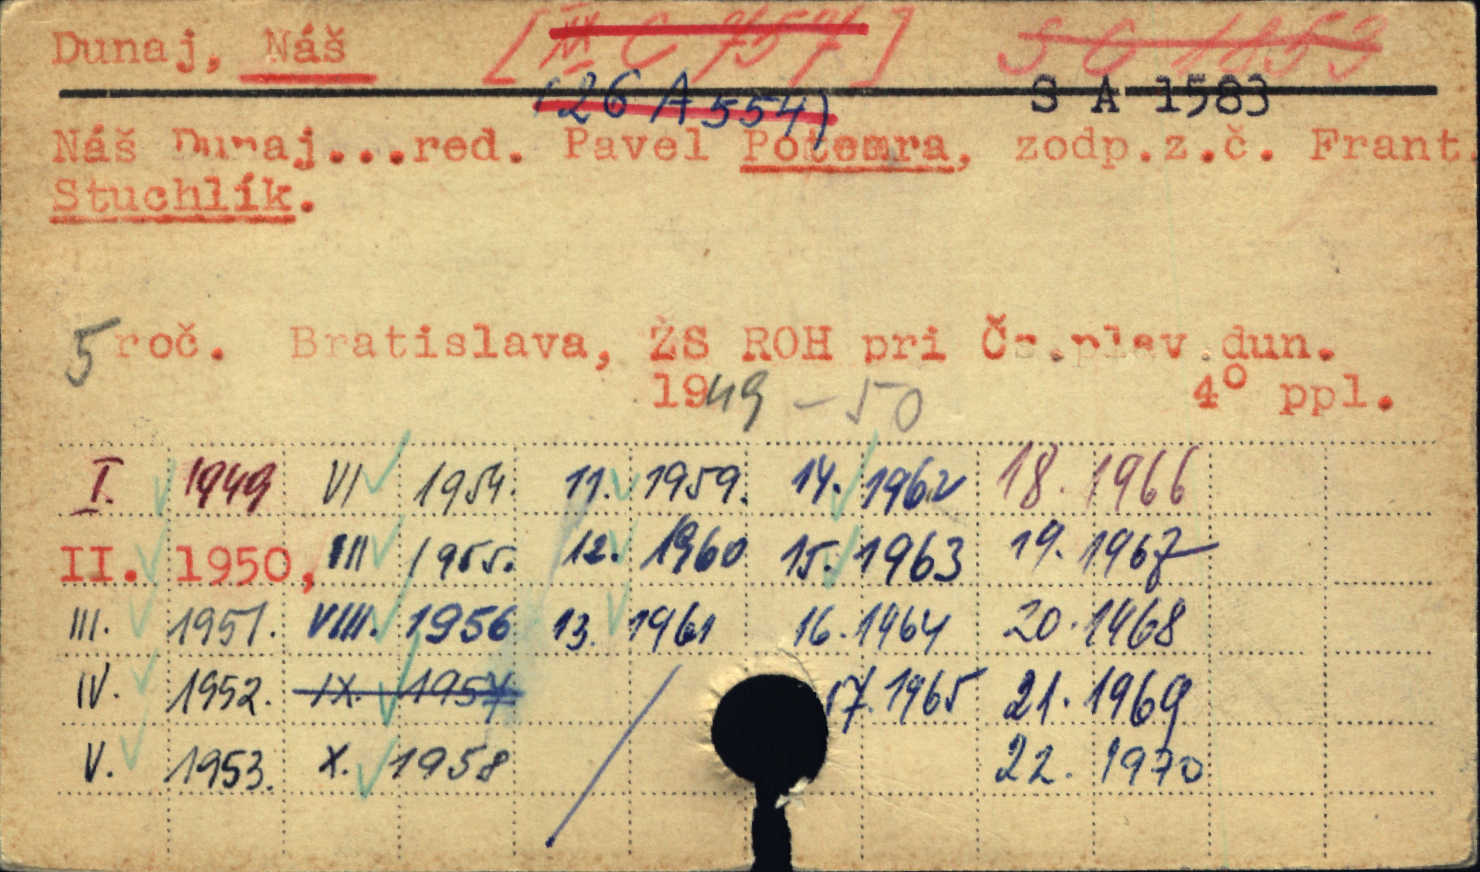 Dunaj, Náš [III C 7571] S C 1853
(26 A 554) S A 1583
Náš Dunaj...red. Pavel Potemra, zodp.z.č. Frant.
Stuchlík.
5 roč. Bratislava, ŽS ROH pri Čs.plav.dun.
1949-50 4° ppl.
I. 1949 VI 1954. 11. 1959. 14. 1962 18. 1966
II. 1950, VII 1955. 12. 1960 15. 1963 19. 1967
III. 1951. VIII. 1956 13. 1961 16. 1964 20. 1968
IV. 1952. IX. 1957 17. 1965 21. 1969
V. 1953. X. 1958 22. 1970